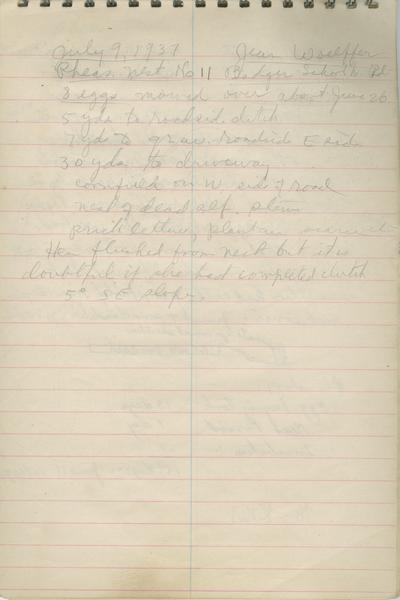 July 9, 1937 Jean Woelffer
Pheas. Nest No 11 Badger School Rd
8 eggs mowed over about June 26
5 yds to roadside ditch
7 yd to grav. roadside E side
30 yds to driveway
cornfield on W side of road
nest of dead alf. stems
prick lettuce, plantain
Hen flushed from nest but it is
doubtful if she had completed clutch
5° SE slope